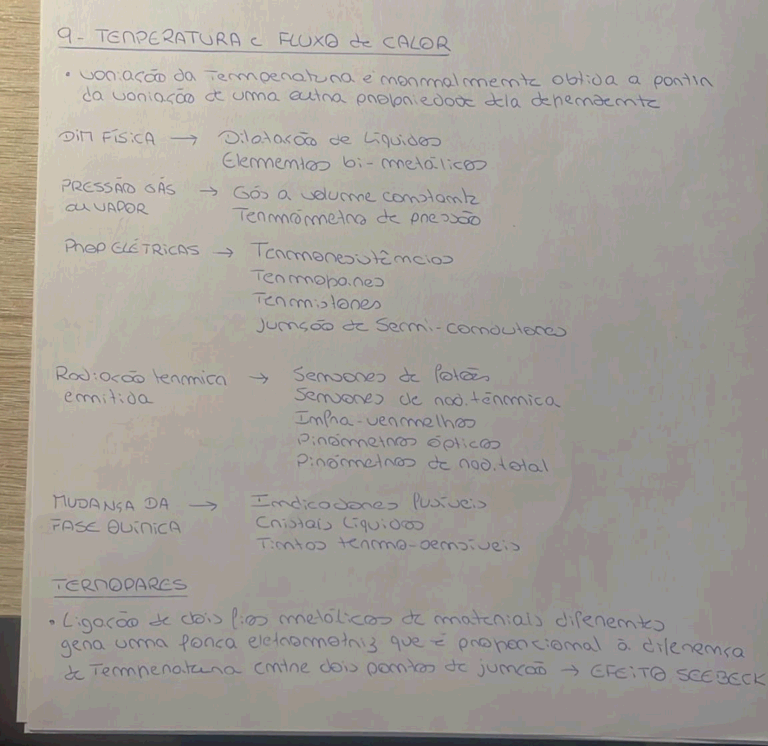 9- TEMPERATURA e FLUXO de CALOR
• variação da Temperatura é normalmente obtida a partir
da variação de uma outra propriedade dela dependente
DIM FÍSICA → Dilatação de Líquidos
Elementos bi-metálicos
PRESSÃO GÁS → Gás a volume constante
ou VAPOR Termómetro de pressão
PROP ELÉTRICAS → Termoresistências
Termopares
Termistores
Junção de Semi-condutores
Radiação termica → Sensores de fotões
emitida Sensores de rad. térmica
Infra-vermelhos
Pirómetros ópticos
Pirómetros de rad. total
MUDANÇA DA → Indicadores fusíveis
FASE QUÍMICA Cristais Líquidos
Tintas termo-sensíveis
TERMOPARES
• Ligação de dois fios metálicos de materiais diferentes
gera uma força eletromotriz que é proporcional à diferença
de Temperatura entre dois pontos de junção → EFEITO SEEBECK